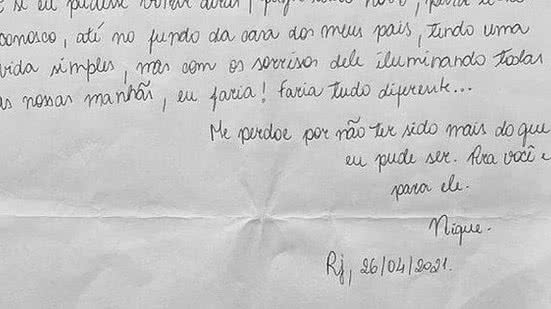 e se eu pudesse voltar atrás,
conosco, até no fundo da casa dos meus pais, tendo uma
vida simples, mas com os sorrisos dele iluminando todas
as nossas manhãs, eu faria! Faria tudo diferente...
Me perdoe por não ter sido mais do que
eu pude ser. Pra você e
para ele.
Nique.
Rj, 26/04/2021.